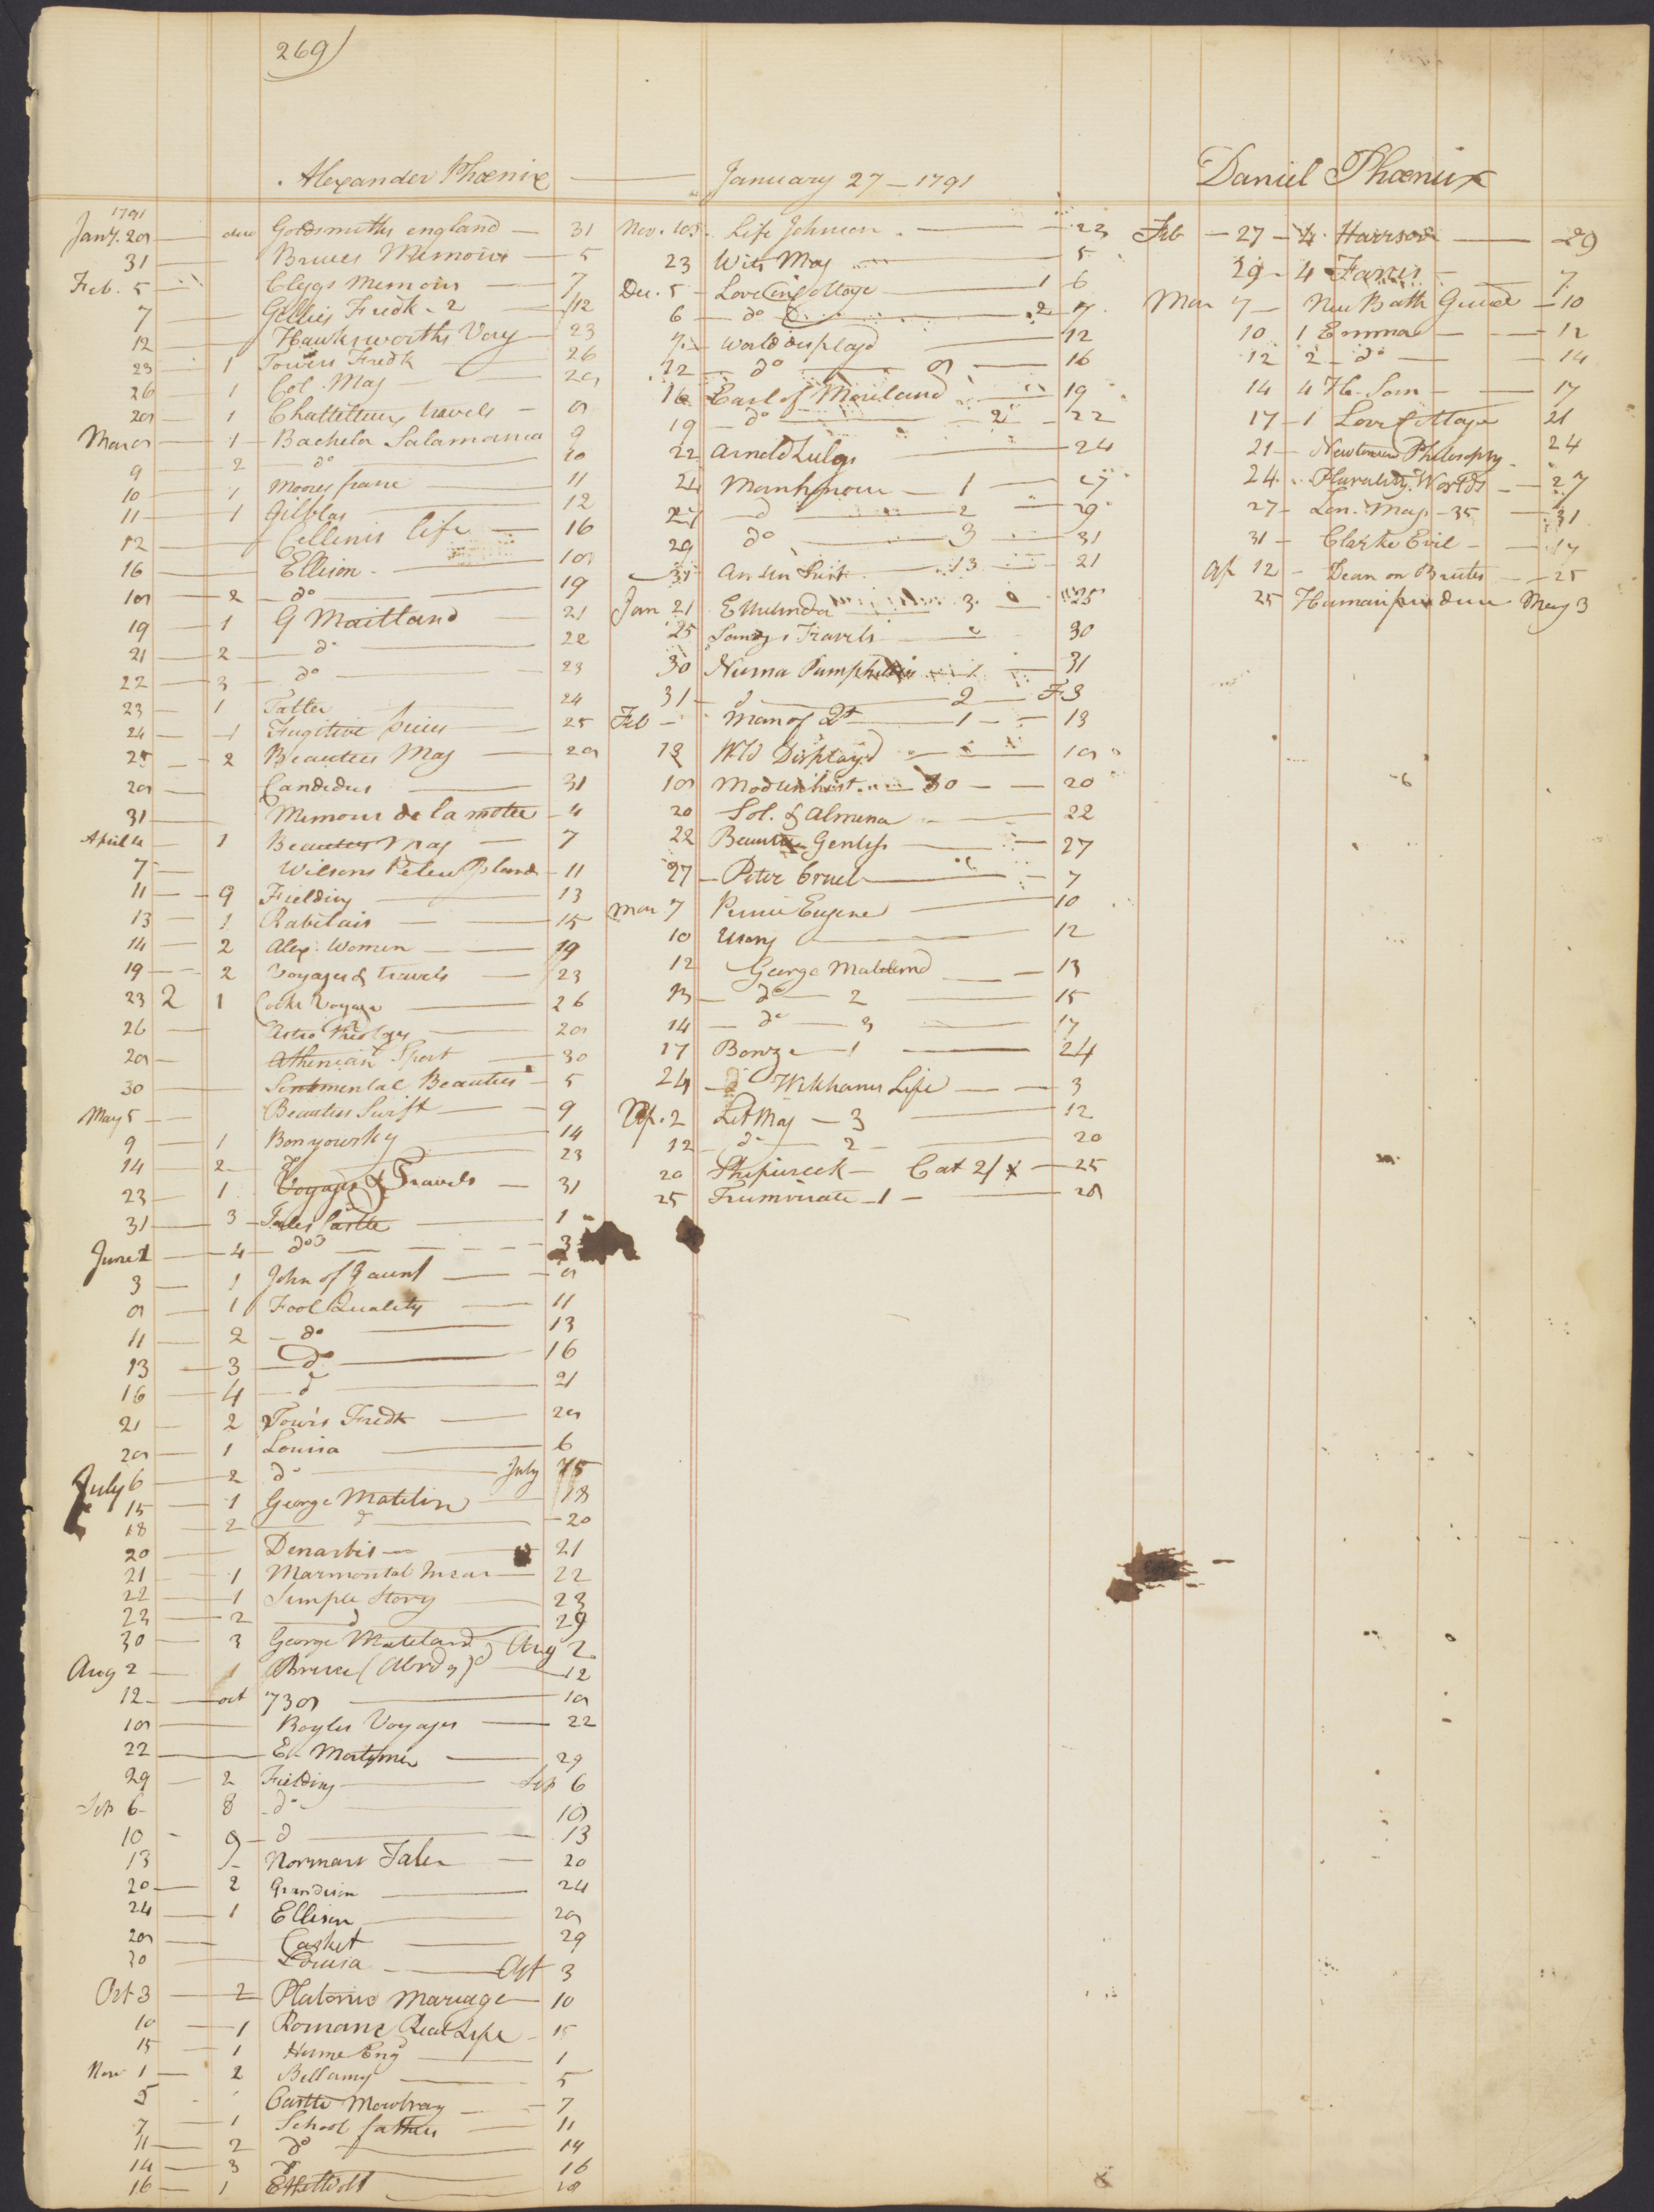 269
Alexander Phœnix — January 27 — 1791
1791
Jany. 28 — due Goldsmiths england — 31
31 — Bruces Memoirs — 5
Feb. 5 — Cleggs Memoirs — 7
7 — Gillies Fredk - 2 — 12
12 — Hawksworths Voy — 23
23 — 1 Towers Fredk — 26
26 — 1 Col. Mag — 28
28 — 1 travels — 8
Mar 8 — 1 — Bachelor Salamanca 9
9 — 2 — do — 10
10 — 1 Moores france — 11
11 — 1 Gilblas — 12
12 — Cellinis life — 16
16 — Ellison — 18
18 — 2 — do — 19
19 — 1 G Maitland — 21
21 — 2 — do — 22
22 — 3 — do — 23
23 — 1 Tatler — 24
24 — 1 Fugitive pieces — 25
25 — 2 Beauties Mag — 28
28 — Candidus — 31
31 — Memoirs de la motte — 4
April 4 — 1 Beauties Mag — 7
7 — Wilsons Pelew Islands — 11
11 — 9 Fielding — 13
13 — 1 Rabelais — 15
14 — 2 Alex. Women — 19
19 — 2 Voyages & travels — 23
23 2 1 Cooks Voyage — 26
26 — Astro Theology — 28
28 — Athenian Sport — 30
30 — Sentimental Beauties — 5
May 5 — Beauties Swift — 9
9 — 1 Bonyowsky — 14
14 — 2 — 23
23 — 1 Voyages & Travels — 31
31 — 3 — Tales Castle — 1
June 1 — 4 — do — 3
3 — 1 John of Gaunt — 8
8 — 1 Fool Quality — 11
11 — 2 — do — 13
13 — 3 — do — 16
16 — 4 — d — 21
21 — 2 Tow's Fredk — 28
28 — 1 Louisa — 6
July 6 — 2 do — July 15
15 — 1 George Matelin — 18
18 — 2 — d — 20
20 — Denarbis — 21
21 — 1 Marmontel — 22
22 — 1 Simple Story — 23
23 — 2 — d — 29
30 — 3 George Mateland — Aug 2
Aug 2 — 1 Bruce (Abrdg) — 12
12 — oct 738 — 18
18 — Boyles Voyages — 22
22 — E. Mortimer — 29
29 — 2 Fielding — Sep 6
Sep 6 — 8 — do — 10
10 — 9 — d — 13
13 — Norman Tales — 20
20 — 2 Grandison — 24
24 — 1 Ellison — 28
28 — Casket — 29
30 — Louisa — Oct 3
Oct 3 — 2 — Platonic Mariage — 10
10 — 1 Romance Real Life — 15
15 — 1 Hume Eng — 1
Nov 1 — 2 Bellamy — 5
5 — Castle Mowbray — 7
7 — 1 School fathers — 11
11 — 2 do — 14
14 — 3 — 16
16 — 1 — 18
Nov. 18 — Life Johnson — 23
23 Wits Mag — 5
Dec. 5 — Love in Cottage — 1 6
6 — do — 2 7
7 — World displayd — 12
12 — do — 8 — 16
16 — Earl of Moreland — 19
19 — do — 2 — 22
22 Arnold Zulig — 24
24 Manhymore — 1 — 27
27 — d — 2 — 29
29 do — 3 — 31
31 An Un hist — 13 — 21
Jan 21 Ethelinda — 3 — 25
25 Sandys Travels — 30
30 Numa Pumphilius — 1 — 31
31 — d — 2 — F. 3
Feb — Man of Qt — 1 — 13
13 Wld Displayd — 18
18 Mod un hist — 30 — 20
20 Sol. & Almena — 22
22 Beauties Gentles — 27
27 — Peter Cruel — 7
Mar 7 Prince Eugene — 10
10 Usong — 12
12 George Mateland — 13
13 — do — 2 — 15
14 — do — 3 — 17
17 Bonze — 1 — 24
24 — Wikhams Life — 3
Ap. 2 Lit Mag — 3 — 12
12 — do — 2 — 20
20 Shipwreck — Cat 21 x — 25
25 Triumvirate — 1 — 28
Daniel Phœnix
Feb — 27 — 4 Harrison — 29
29 — 4 — 7
Mar 7 — New Bath Guide — 10
10 1 Emma — 12
12 2 — do — 14
14 4 — 17
17 — 1 Love Cottage 21
21 — Newtonian Philosophy — 24
24 — Plurality Worlds — 27
27 — Lon. Mag — 35 — 31
31 — Clarke Evil — 12
Ap 12 — Dean on Brutes — 25
25 Human prudence May 3